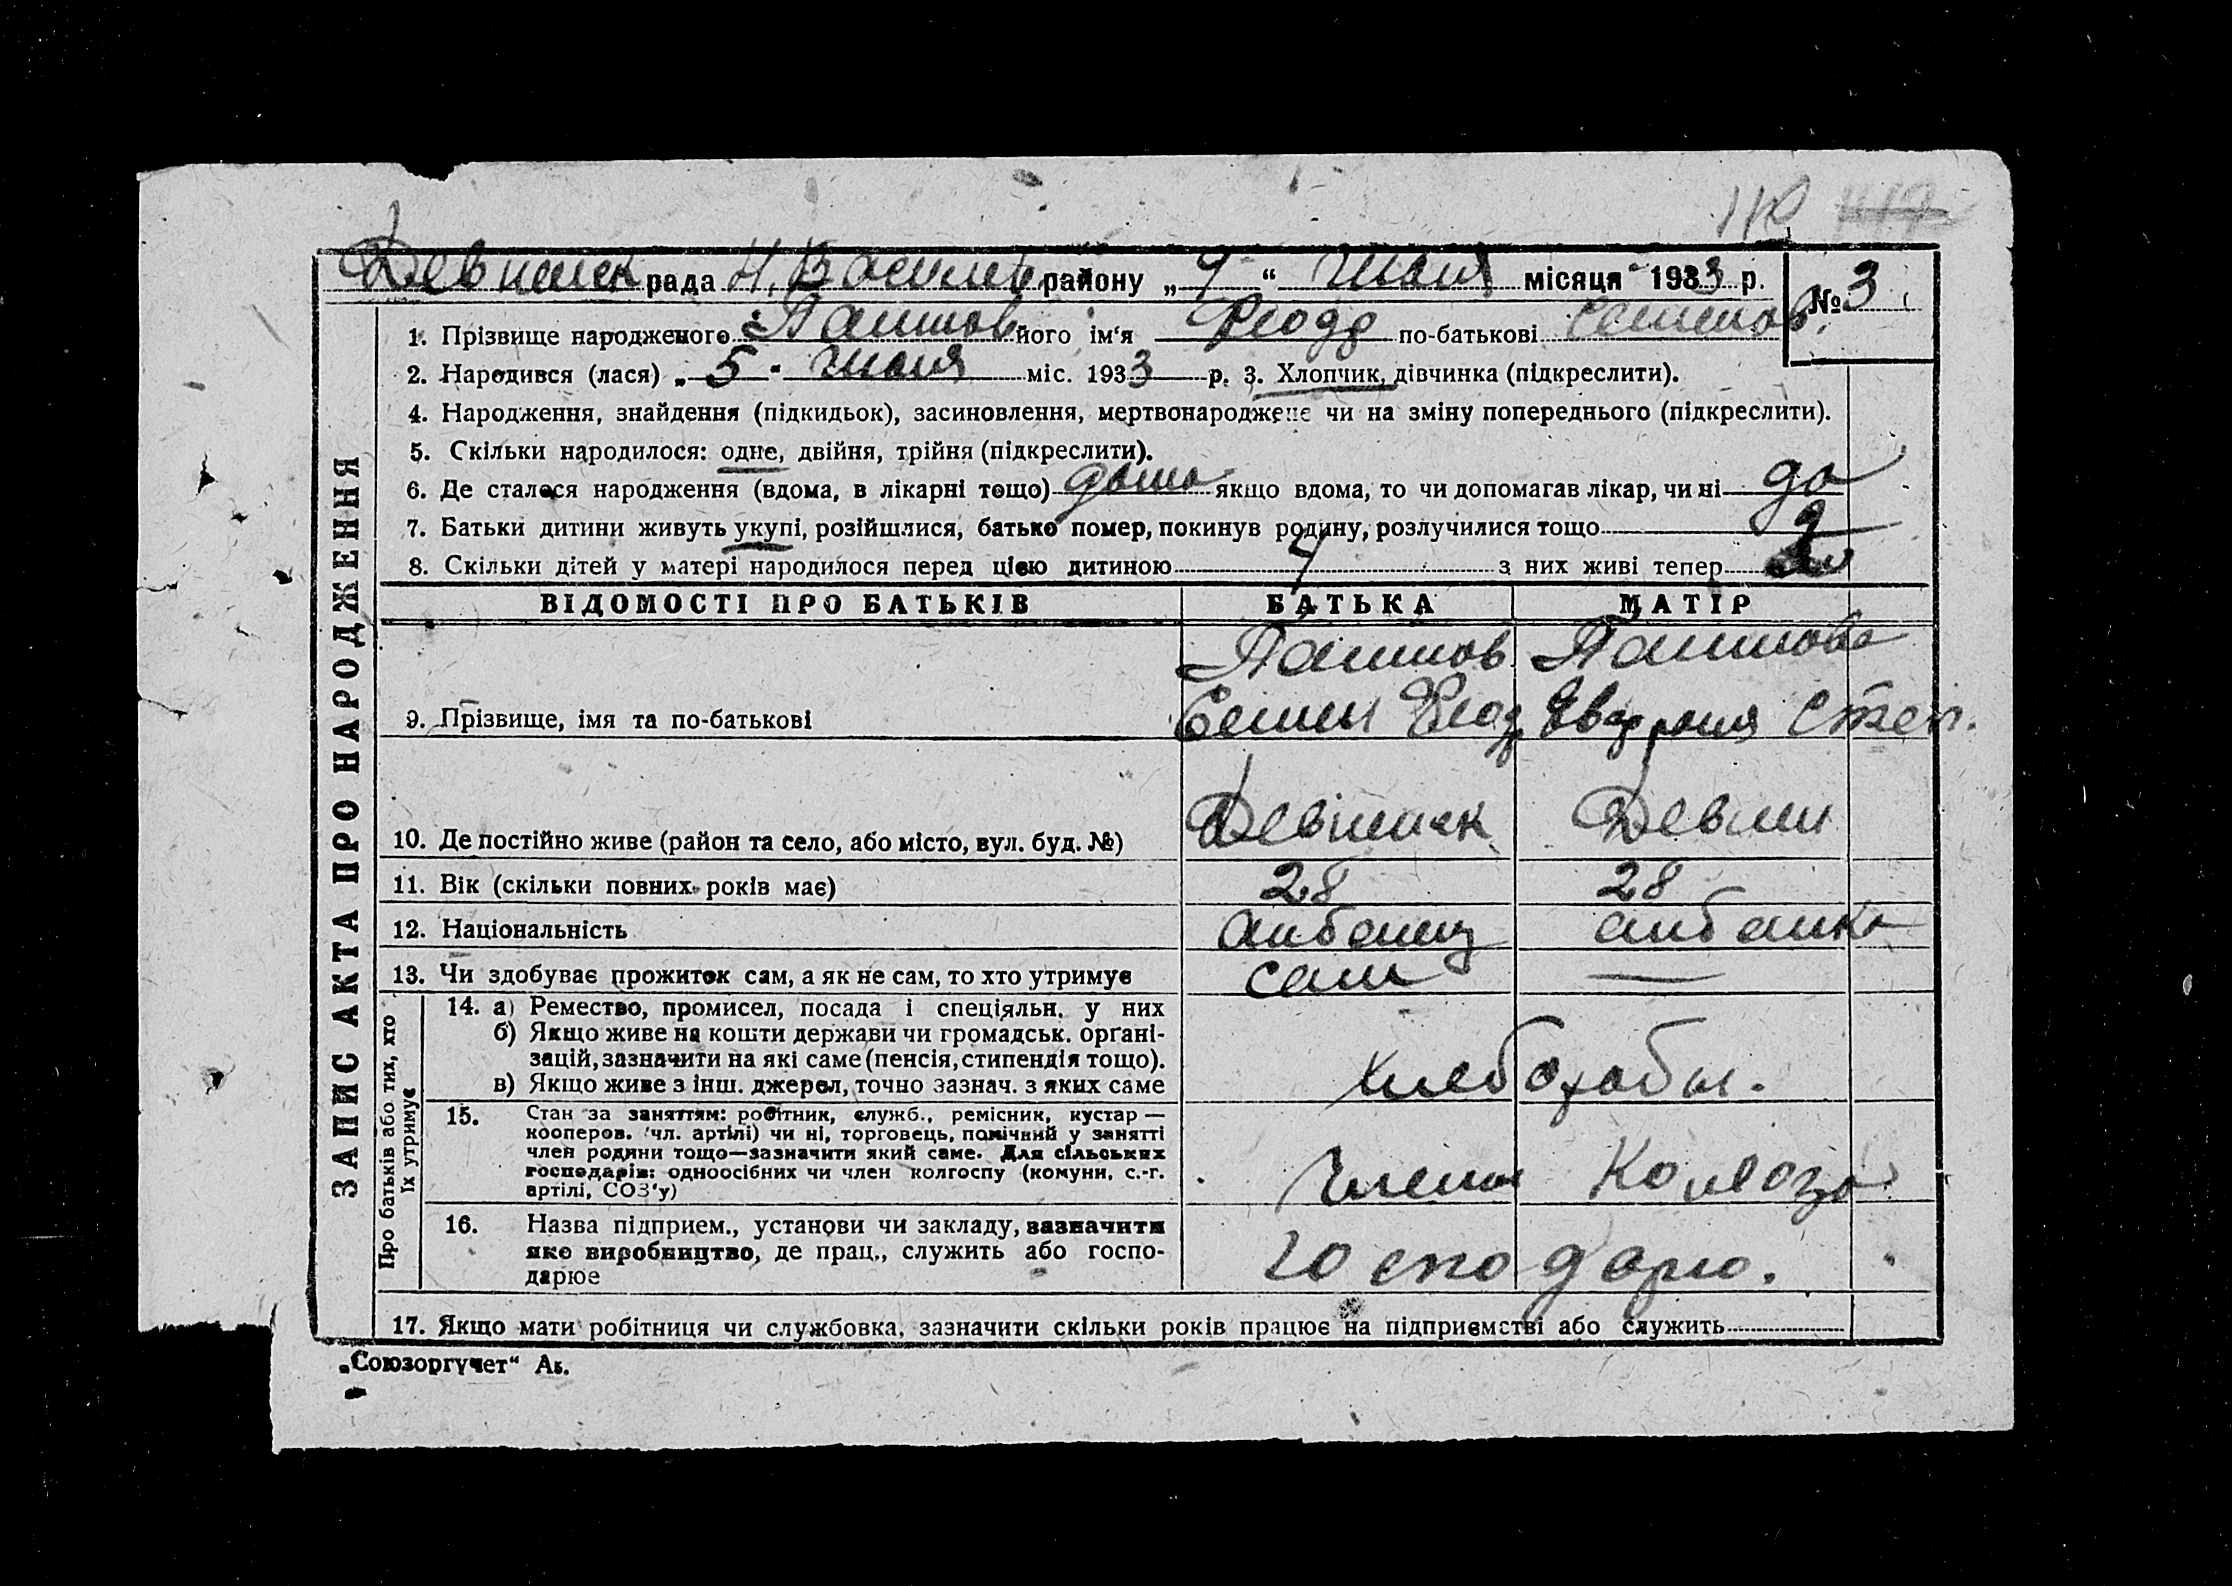 110 117
рада Н. Василев району „7“ июля місяця 1933 р. №3
1. Прізвище народженого його ім'я Феодр по-батькові Семенов
2. Народився (лася) „5“ июля міс. 1933 р. 3. Хлопчик, дівчинка (підкреслити).
4. Народження, знайдення (підкидьок), засиновлення, мертвонароджене чи на зміну попереднього (підкреслити).
5. Скільки народилося: одне, двійня, трійня (підкреслити).
6. Де сталося народження (вдома, в лікарні тощо) дома якщо вдома, то чи допомагав лікар, чи ні да
7. Батьки дитини живуть укупі, розійшлися, батько помер, покинув родину, розлучилися тощо
8. Скільки дітей у матері народилося перед цією дитиною 4 з них живі тепер 2
ВІДОМОСТІ ПРО БАТЬКІВ БАТЬКА МАТІР
9. Прізвище, імя та по-батькові
Семен Феод. Степ.
10. Де постійно живе (район та село, або місто, вул. буд. №)
11. Вік (скільки повних років має) 28 28
12. Національність албанец албанка
13. Чи здобуває прожиток сам, а як не сам, то хто утримує сам —
14. а) Ремество, промисел, посада і спеціяльн. у них
б) Якщо живе на кошти держави чи громадськ. орґані-
зацій, зазначити на які саме (пенсія, стипендія тощо).
в) Якщо живе з інш. джерел, точно зазнач. з яких саме хлеборобы.
15. Стан за заняттям: робітник, служб., ремісник, кустар —
кооперов. (чл. артілі) чи ні, торговець, помічний у занятті
член родини тощо—зазначити який саме. Для сільських
господарів: одноосібних чи член колгоспу (комуни, с.-г.
артілі, СОЗ'у) члены Колхоза
16. Назва підприєм., установи чи закладу, зазначити
яке виробництво, де прац., служить або госпо-
дарює господарю.
17. Якщо мати робітниця чи службовка, зазначити скільки років працює на підприємстві або служить
ЗАПИС АКТА ПРО НАРОДЖЕННЯ
Про батьків або тих, хто
їх утримує
„Союзоргучет“ Ак.